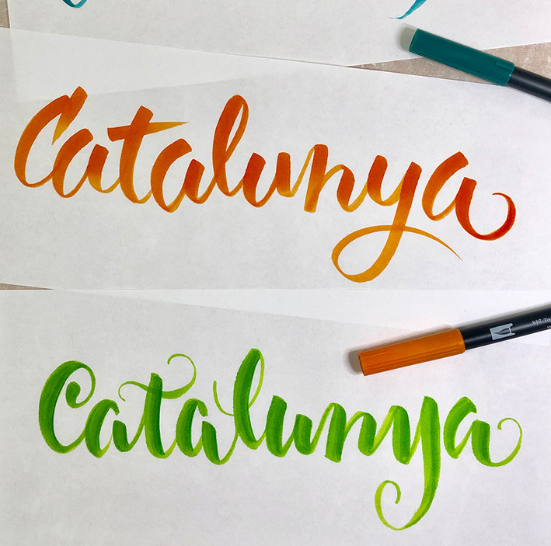 Catalunya
Catalunya